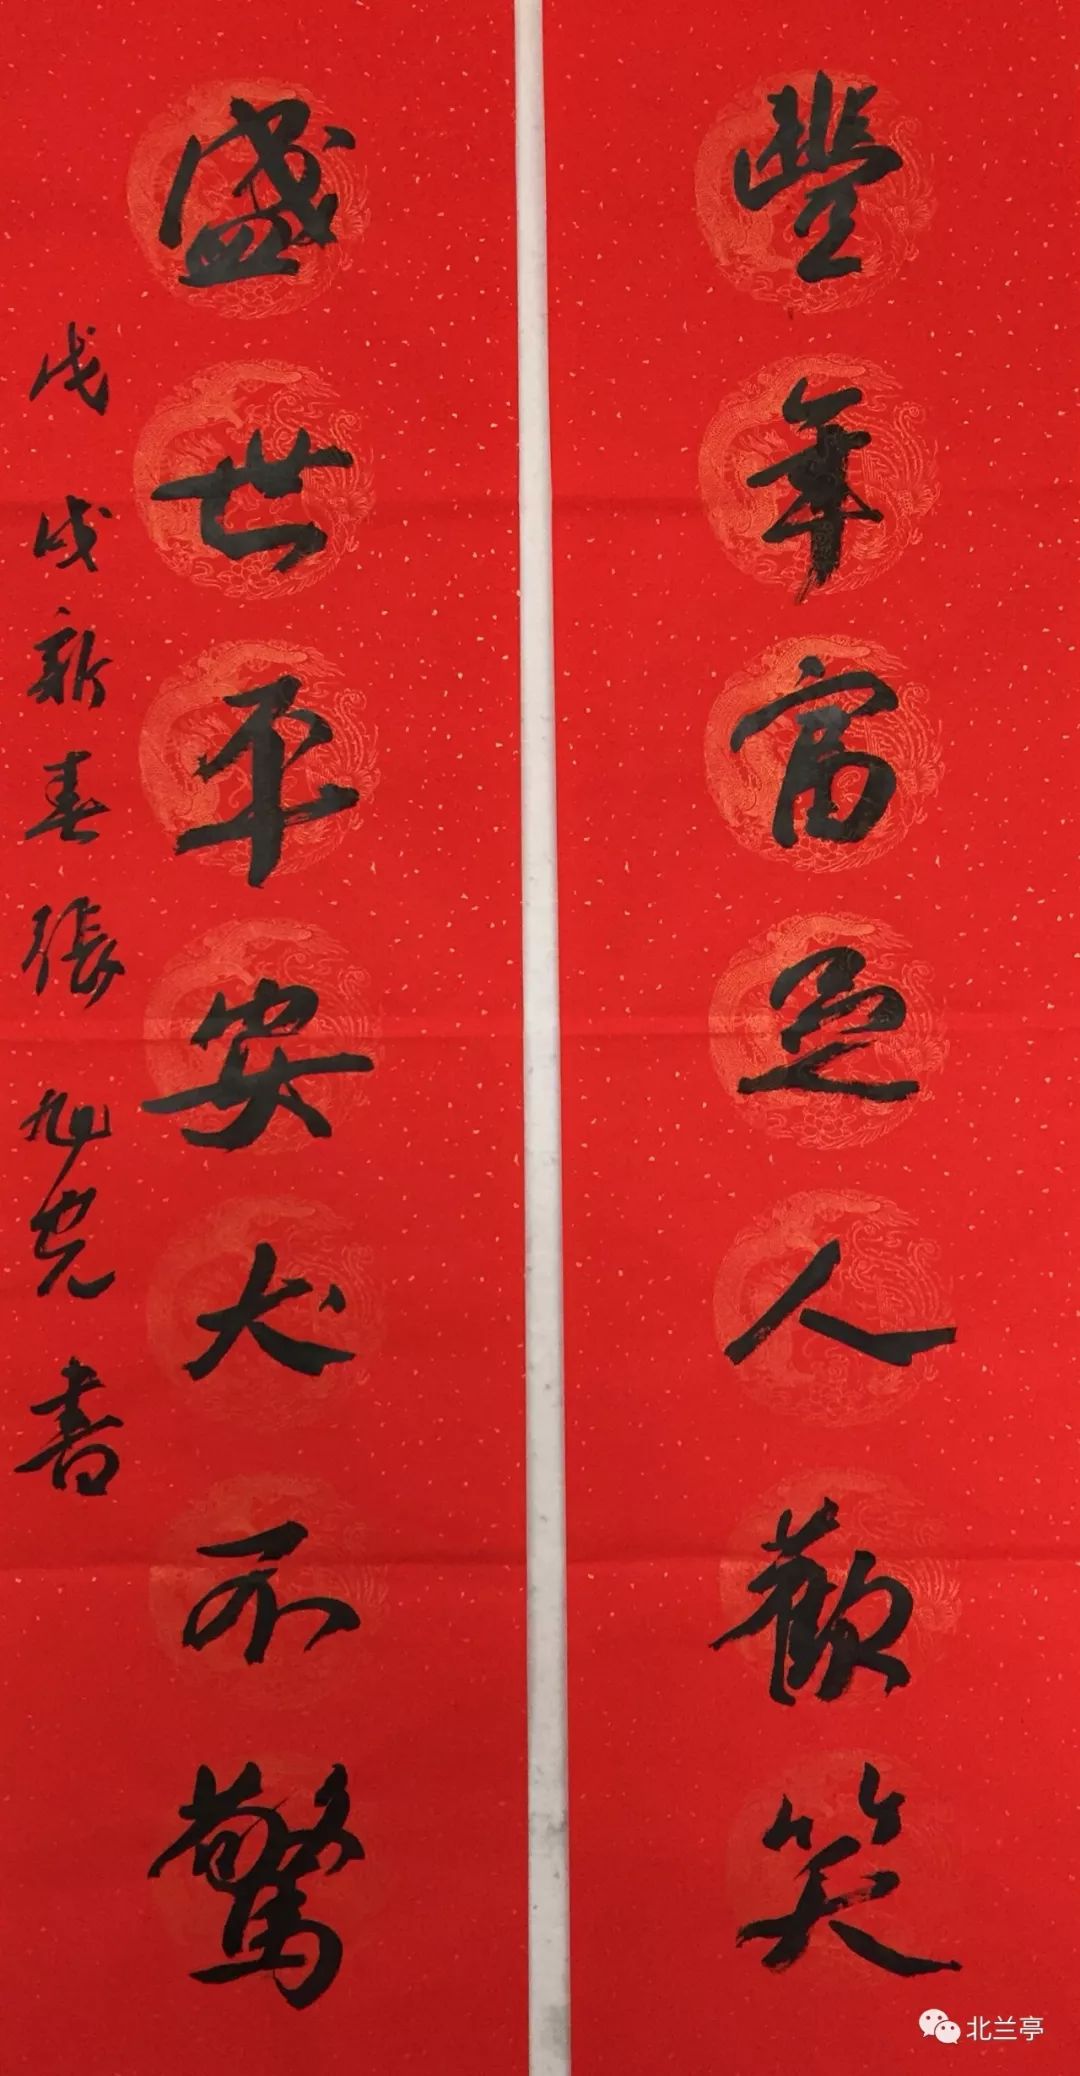 豐年富足人歡笑
盛世平安犬不驚
戊戌新春張旭光書
北兰亭